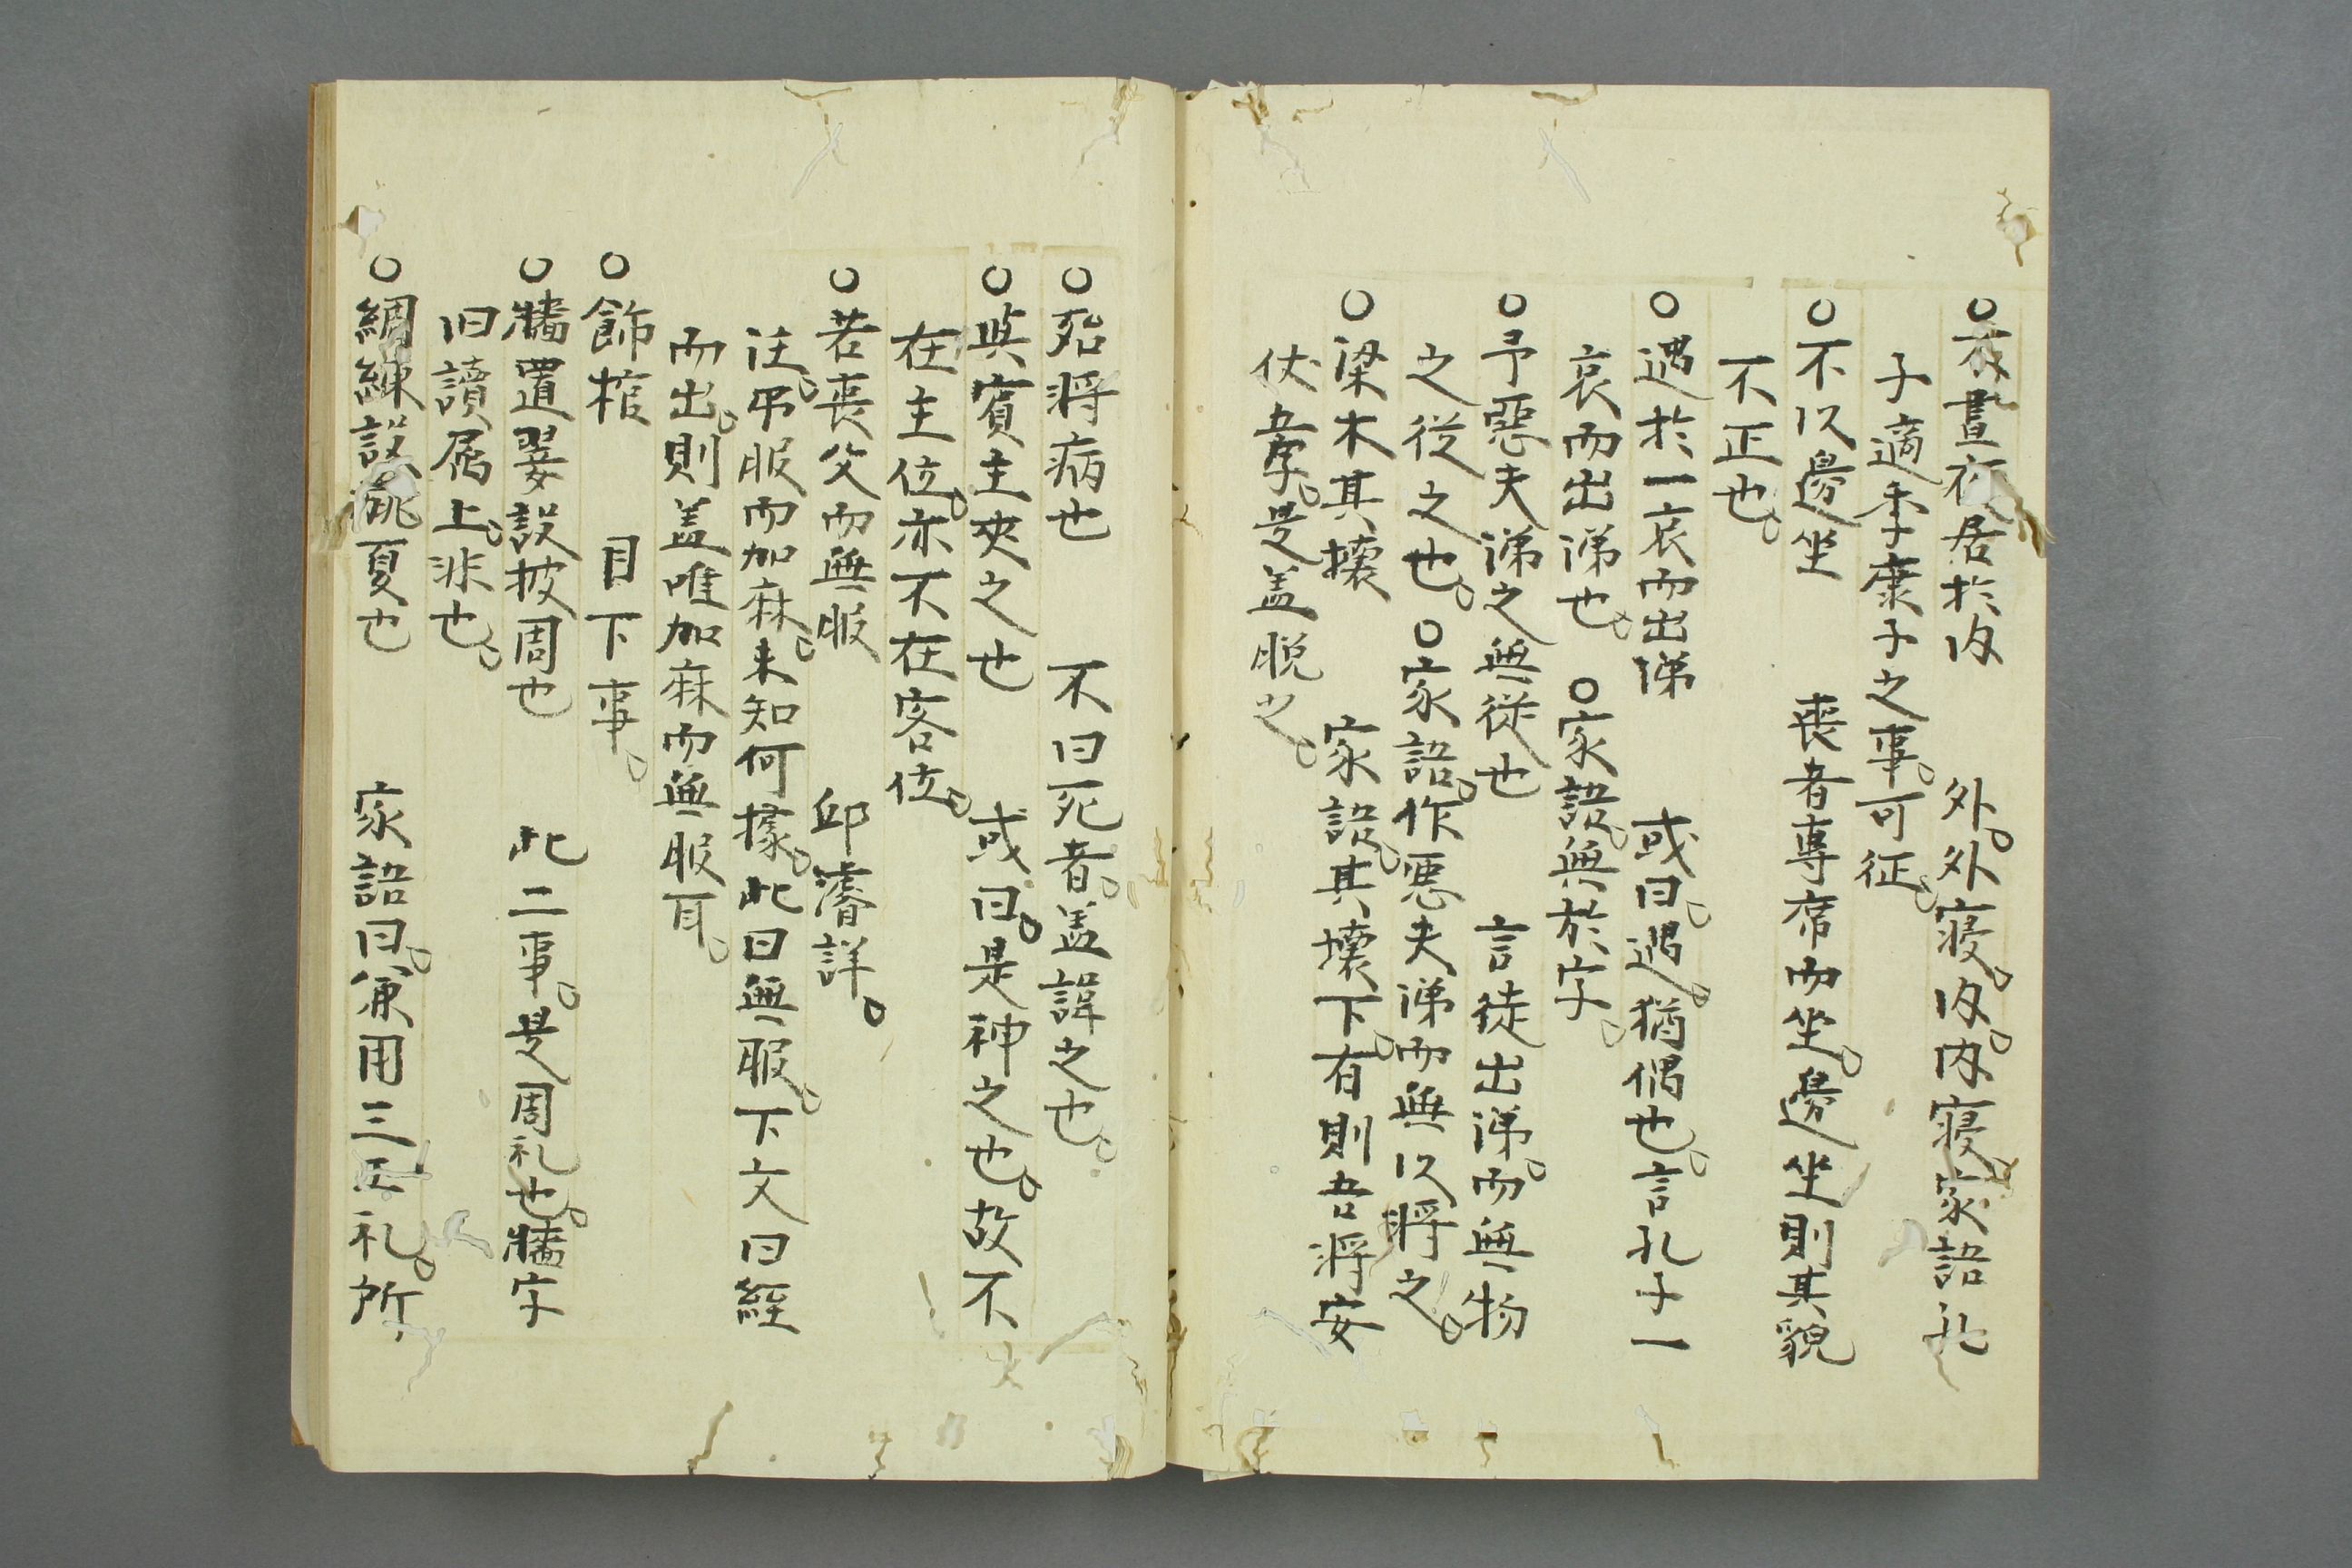 ○夜晝夜居於内　外。外寝。内。内寝。家語孔
子適季康子之事。可征。
○不以邊坐　喪者専席而坐。邊坐則其貌
不正也。
○遇於一哀而出涕　或曰。遇。猶偶也。言孔子一
哀而出涕也。○家語。無於字。
○予惡夫涕之無従也　言徒出涕。而無物
之従之也。○家語。作悪夫涕而無以将之。
○梁木其壊　家語。其壊下。有則吾将安
仗五字。是盖脱之。
○殆将病也　不曰死者。盖諱之也。
○與賓主夾之也　或曰。是神之也。故不
在主位。亦不在客位。
○若喪父而無服　邱濬詳。
注。弔服而加麻。未知何據。此曰無服。下文曰絰
而出。則盖唯加麻而無服耳。
○飾棺　目下事。
○牆置翣設披周也　此二事。是周礼也。牆字
旧讀属上。非也。
○綢練設旐夏也　家語曰。兼用三王礼。所